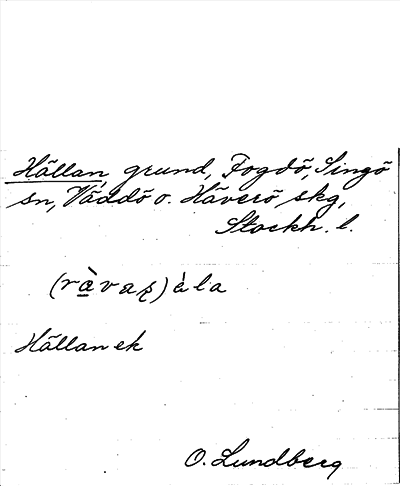 Hällan, grund, Fogdö, Singö
sn, Väddö o. Häverö skg,
Stockh. l.
(ràvaʂ)àla
Hällan ek
O. Lundberg